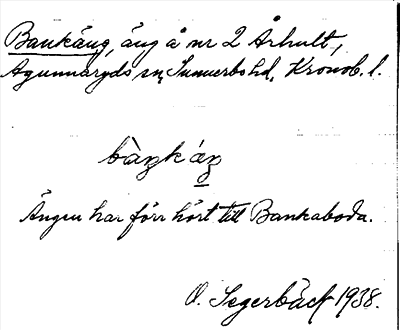 Bankäng, äng å nr 2 Århult,
Agunnaryds sn, Sunnerbo hd, Kronob. l.
bàŋkáŋ
Ängen har förr hört till Bankaboda.
O. Segerbäck 1938.